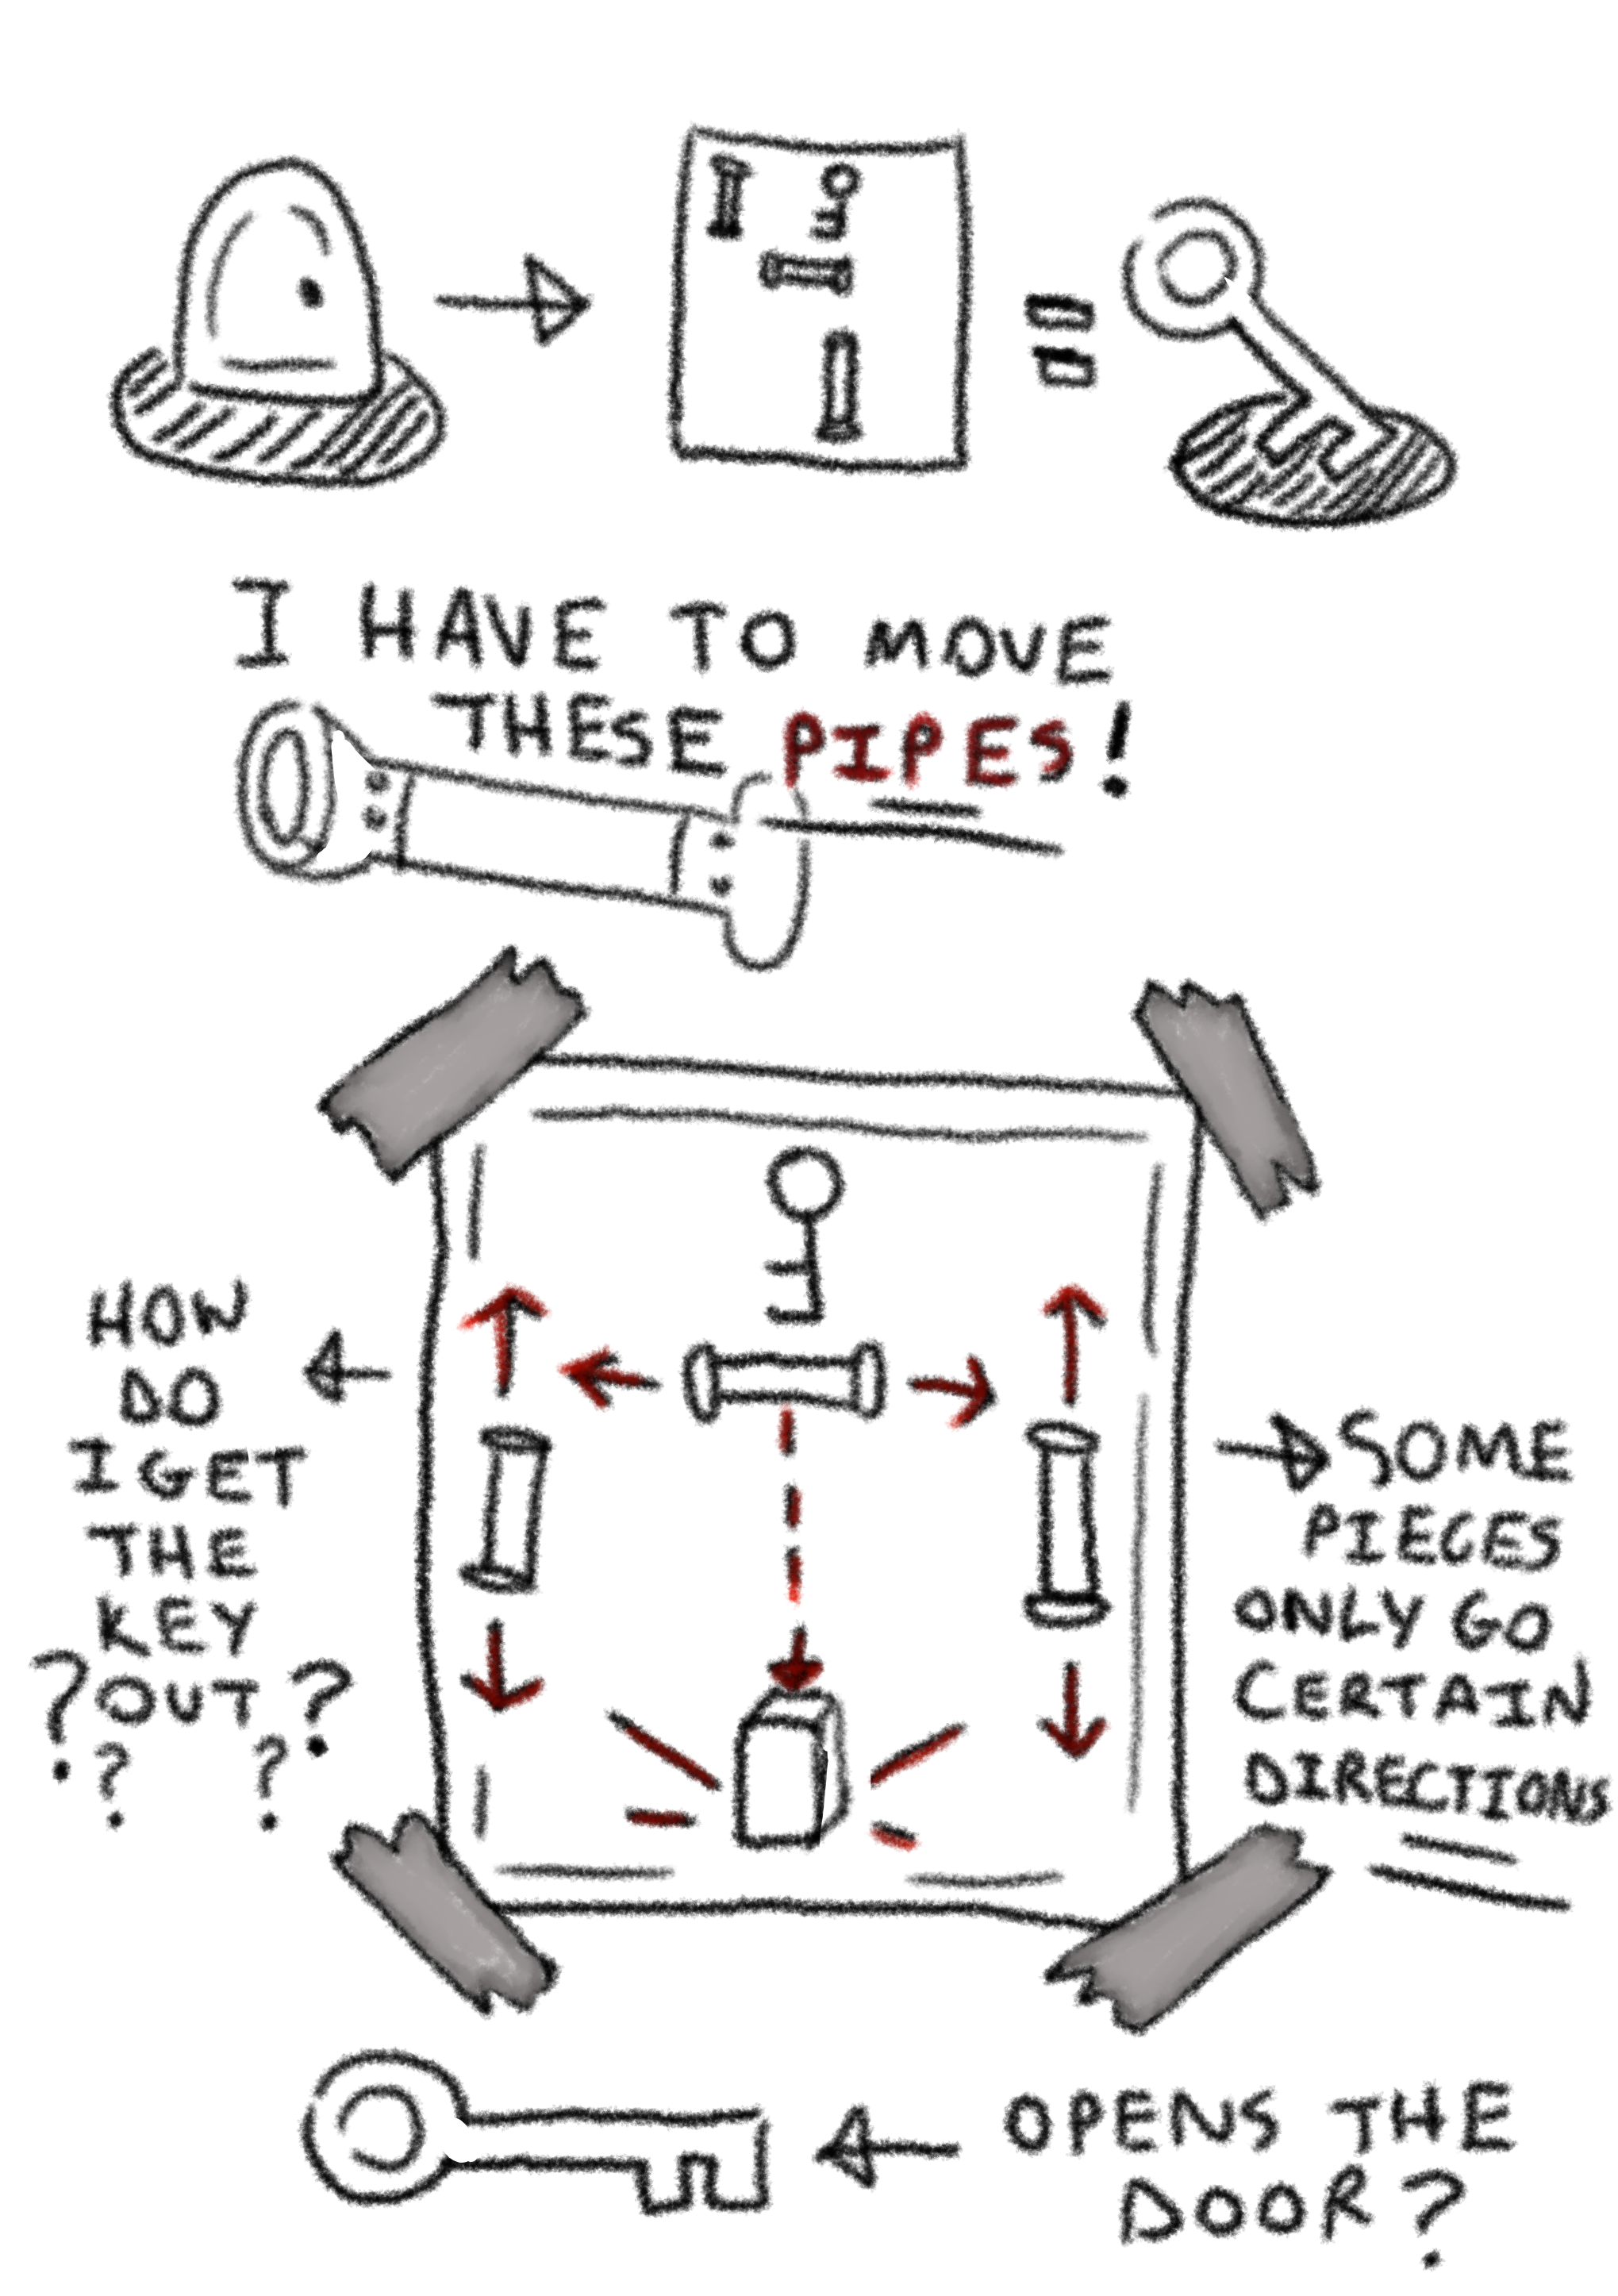 I HAVE TO MOVE
THESE PIPES!
HOW
DO
I GET
THE
KEY
?OUT?
? ?
SOME
PIECES
ONLY GO
CERTAIN
DIRECTIONS
OPENS THE
DOOR?